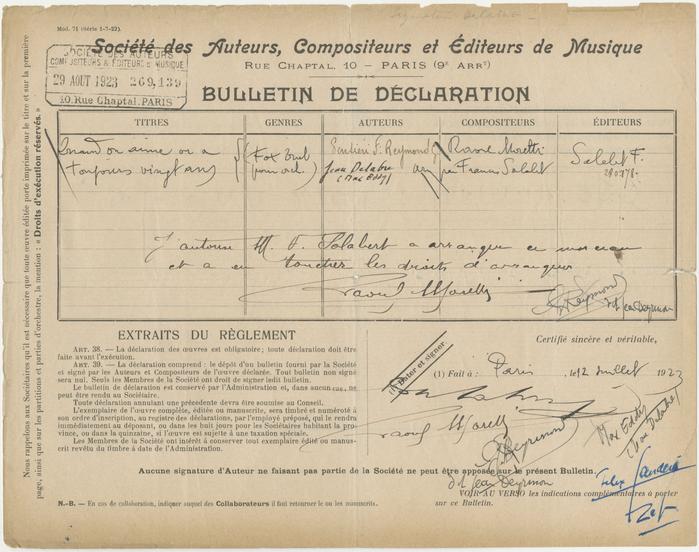 Mod. 71 (Série 1-7-22).
Société des Auteurs, Compositeurs et Éditeurs de Musique
RUE CHAPTAL, 10 — PARIS (9e ARRt)
SOCIÉTÉ DES AUTEURS
COMPOSITEURS & ÉDITEURS DE MUSIQUE
29 AOUT 1923 269,139
10, Rue Chaptal, PARIS
BULLETIN DE DÉCLARATION
TITRES GENRES AUTEURS COMPOSITEURS ÉDITEURS
Quand on aime on a
toujours vingt ans
(Fox Trot
pour orch.)
F. Reymond
Jean Delabre
(Max Eddy)
Raoul Moretti
arr par Francis Salabert
Salabert F.
J'autorise M. F. Salabert a arranger ce morceau
et a en toucher les droits d'arrangeur
Raoul Moretti
Reymond
dit Jean Deyrmon
EXTRAITS DU RÈGLEMENT
ART. 38. — La déclaration des œuvres est obligatoire; toute déclaration doit être
faite avant l'exécution.
ART. 39. — La déclaration comprend : le dépôt d'un bulletin fourni par la Société
et signé par les Auteurs et Compositeurs de l'œuvre déclarée. Tout bulletin non
signé sera nul. Seuls les Membres de la Société ont droit de signer ledit bulletin.
Le bulletin de déclaration est conservé par l'Administration et, dans aucun cas, ne
peut être rendu au Sociétaire.
Toute déclaration annulant une précédente devra être soumise au Conseil.
L'exemplaire de l'œuvre complète, éditée ou manuscrite, sera timbré et numéroté à
son ordre d'inscription, au registre des déclarations, par l'employé préposé, qui le rendra
immédiatement au déposant, ou dans les huit jours pour les Sociétaires habitant la pro-
vince, ou dans la quinzaine, si l'œuvre est sujette à une taxation spéciale.
Les Membres de la Société ont intérêt à conserver tout exemplaire édité ou manus-
crit revêtu du timbre à date de l'Administration.
Certifié sincère et véritable,
(1) Dater et signer
(1) Fait à : Paris le 12 Juillet 1923
Raoul Moretti
Reymond
dit Jean Deyrmon
Max Eddy
(Jean Delabre)
Aucune signature d'Auteur ne faisant pas partie de la Société ne peut être apposée sur le présent Bulletin.
N.-B. — En cas de collaboration, indiquer auquel des Collaborateurs il faut retourner le ou les manuscrits.
VOIR AU VERSO les indications complémentaires à porter
sur ce Bulletin.
Nous rappelons aux Sociétaires qu'il est nécessaire que toute œuvre éditée porte imprimée sur le titre et sur la première
page, ainsi que sur les partitions et parties d'orchestre, la mention : « Droits d'exécution réservés. »